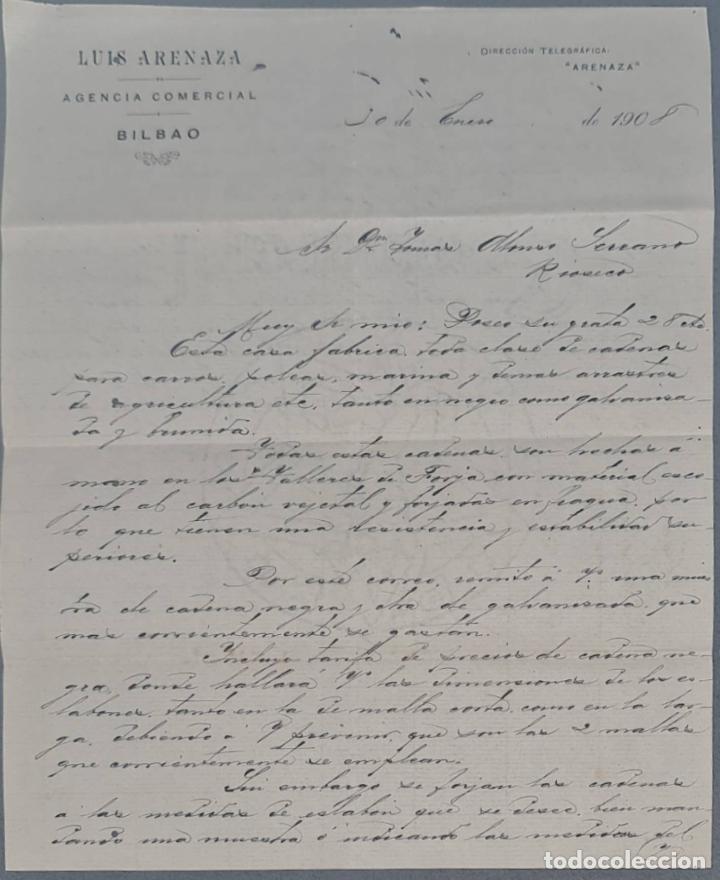 LUIS ARENAZA
AGENCIA COMERCIAL
BILBAO
DIRECCIÓN TELEGRÁFICA:
"ARENAZA"
30 de Enero de 1908
Sr Dn Tomas Alonso Serrano
Rioseco
Muy Sr mio: Poseo su grata 28 cte.
Esta casa fabrica toda clase de cadenas
para carros, poleas, marina y demas arrastres
de agricultura etc, tanto en negro como galvaniza-
da y brunida.
Todas estas cadenas son hechas á
mano en los Talleres de Forja con material esco-
jido al carbón vejetal y forjadas en fragua, por
lo que tienen una resistencia y estabilidad su-
periores.
Por este correo, remito á V. una mues-
tra de cadena negra y otra de galvanizada que
mas corrientemente se gastan.
Incluyo tarifa de precios de cadena ne-
gra, donde hallará V. las dimensiones de los es-
labones, tanto en la de malla corta como en la lar-
ga, debiendo á V. prevenir, que son las 2 mallas
que corrientemente se emplean.
Sin embargo se forjan las cadenas
a las medidas de eslabón que se desee, bien man-
dando una muestra ó indicando las medidas del
todocoleccion.net